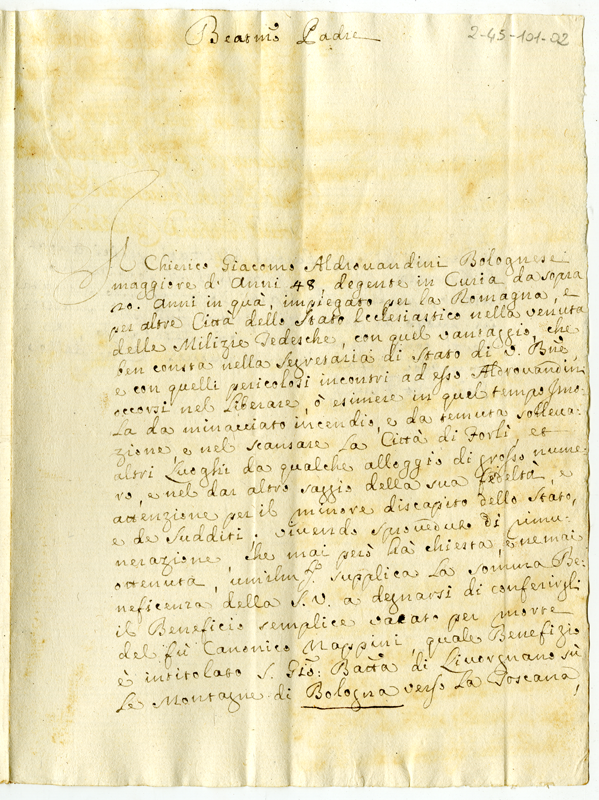 Beatmo Padre
2-45-101-02
Il Chierico Giacomo Aldrovandini Bolognese
maggiore d'Anni 48, degente in Curia da sopra
20. Anni in quà, impiegato per la Romagna, e
per altre Città dello Stato Ecclesiastico nella venuta
delle Milizie Tedesche, con quel vantaggio, che
ben consta nella Segretaria di Stato di V. Bne,
e con quelli pericolosi incontri ad esso Aldrovandini
occorsi nel liberare, ò esimere in quel tempo Imo-
la da minacciato incendio, e da temuta solleva-
zione, e nel scansare la Città di Forlì, et
altri Luoghi da qualche alloggio di grosso nume-
ro, e nel dar altro saggio della sua fedeltà, e
attenzione per il minore discapito dello Stato,
e de Sudditi. Vivendo sproveduto di rimu-
nerazione, che mai però hà chiesta, e ne mai
ottenuta, supplica la somma Be-
neficenza della S. V. a degnarsi di conferirgli
il Beneficio semplice vacato per morte
del fù Canonico Nappini, quale Benefizio
è intitolato S. Gio: Batta di Livergnano sù
le Montagne di Bologna verso la Toscana,